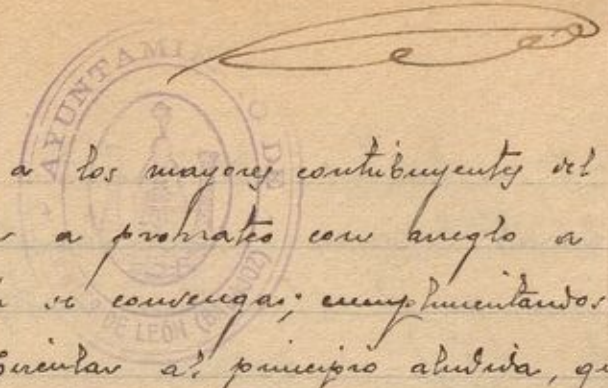 AYUNTAMIENTO DE
DE LEÓN (BADAJOZ)
a los mayores contribuyentes del
a prorrateo con arreglo a
se convenga; cumplimentandos
Circular al principio aludida, qu